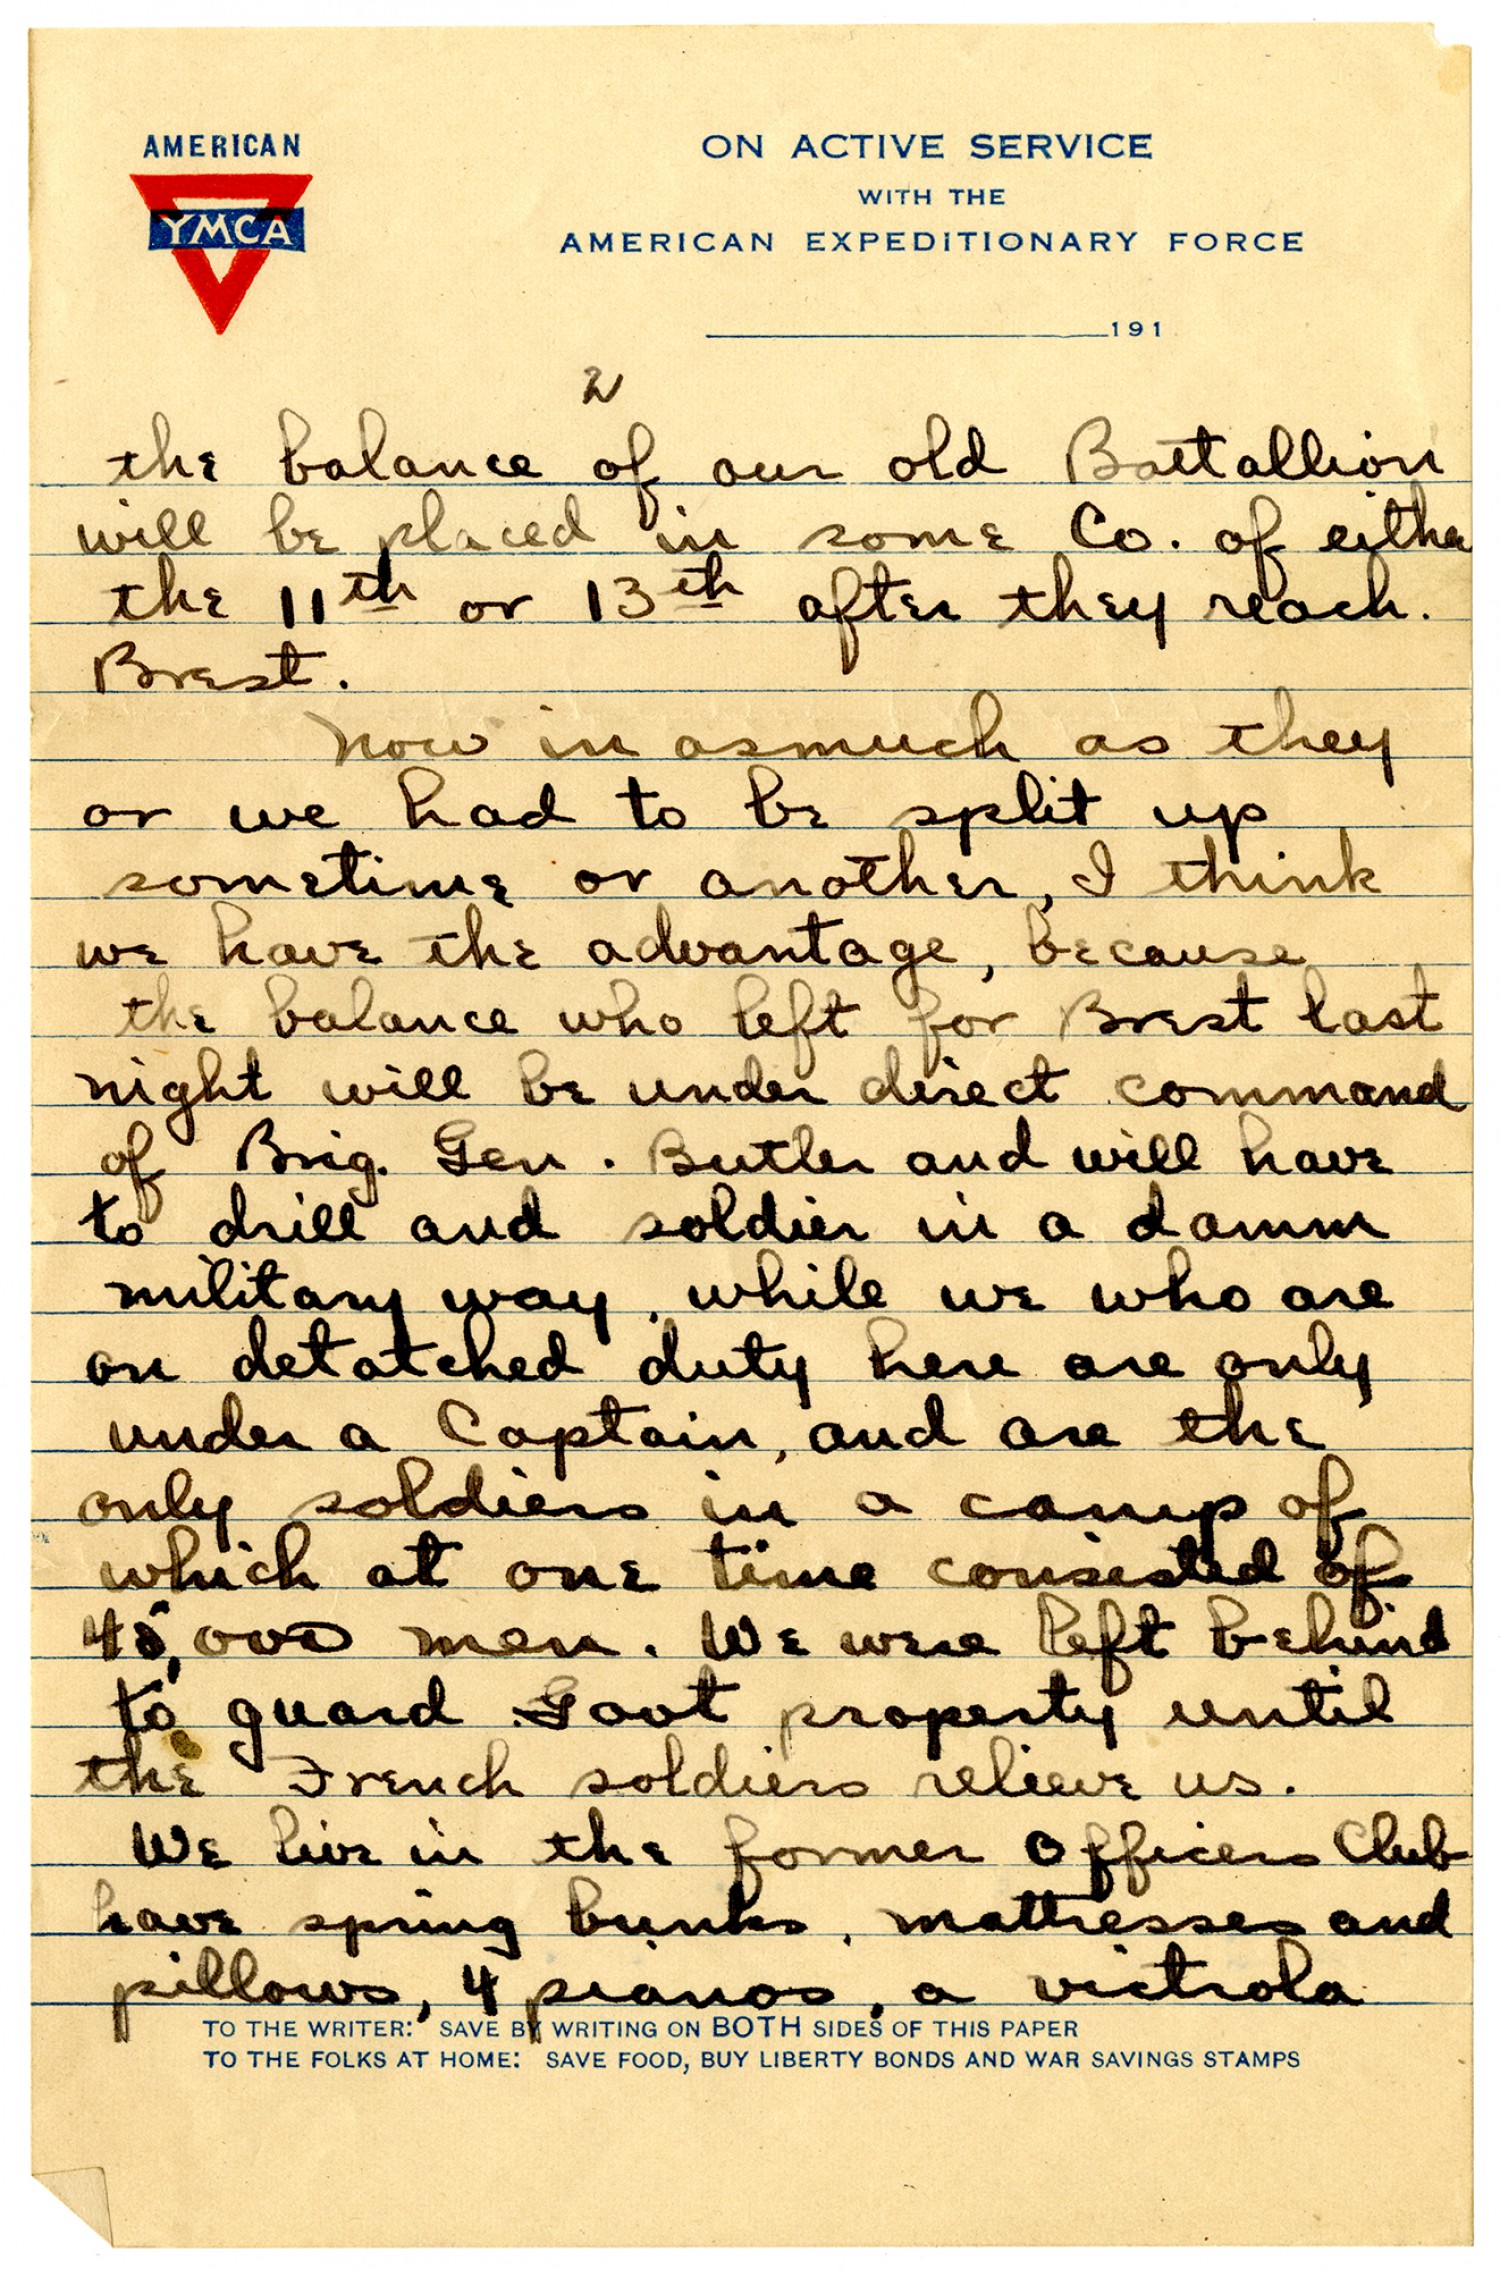 AMERICAN
YMCA
ON ACTIVE SERVICE
WITH THE
AMERICAN EXPEDITIONARY FORCE
191
2
the balance of our old Battallion
will be placed in some Co. of eithe
the 11th or 13th after they reach.
Brest.
Now in asmuch as they
or we had to be split up
sometime or another, I think
we have the advantage, because
the balance who left for Brest last
night will be under direct command
of Brig. Gen. Butler and will have
to drill and soldier in a damm
military way, while we who are
on detatched duty here are only
under a Captain, and are the
only soldiers in a camp of
which at one time consisted of
45,000 men. We were left behind
to guard Govt property until
the French soldiers relieve us.
We live in the former Officers Club
have spring bunks, mattresses and
pillows, 4 pianos, a victrola
TO THE WRITER: SAVE BY WRITING ON BOTH SIDES OF THIS PAPER
TO THE FOLKS AT HOME: SAVE FOOD, BUY LIBERTY BONDS AND WAR SAVINGS STAMPS